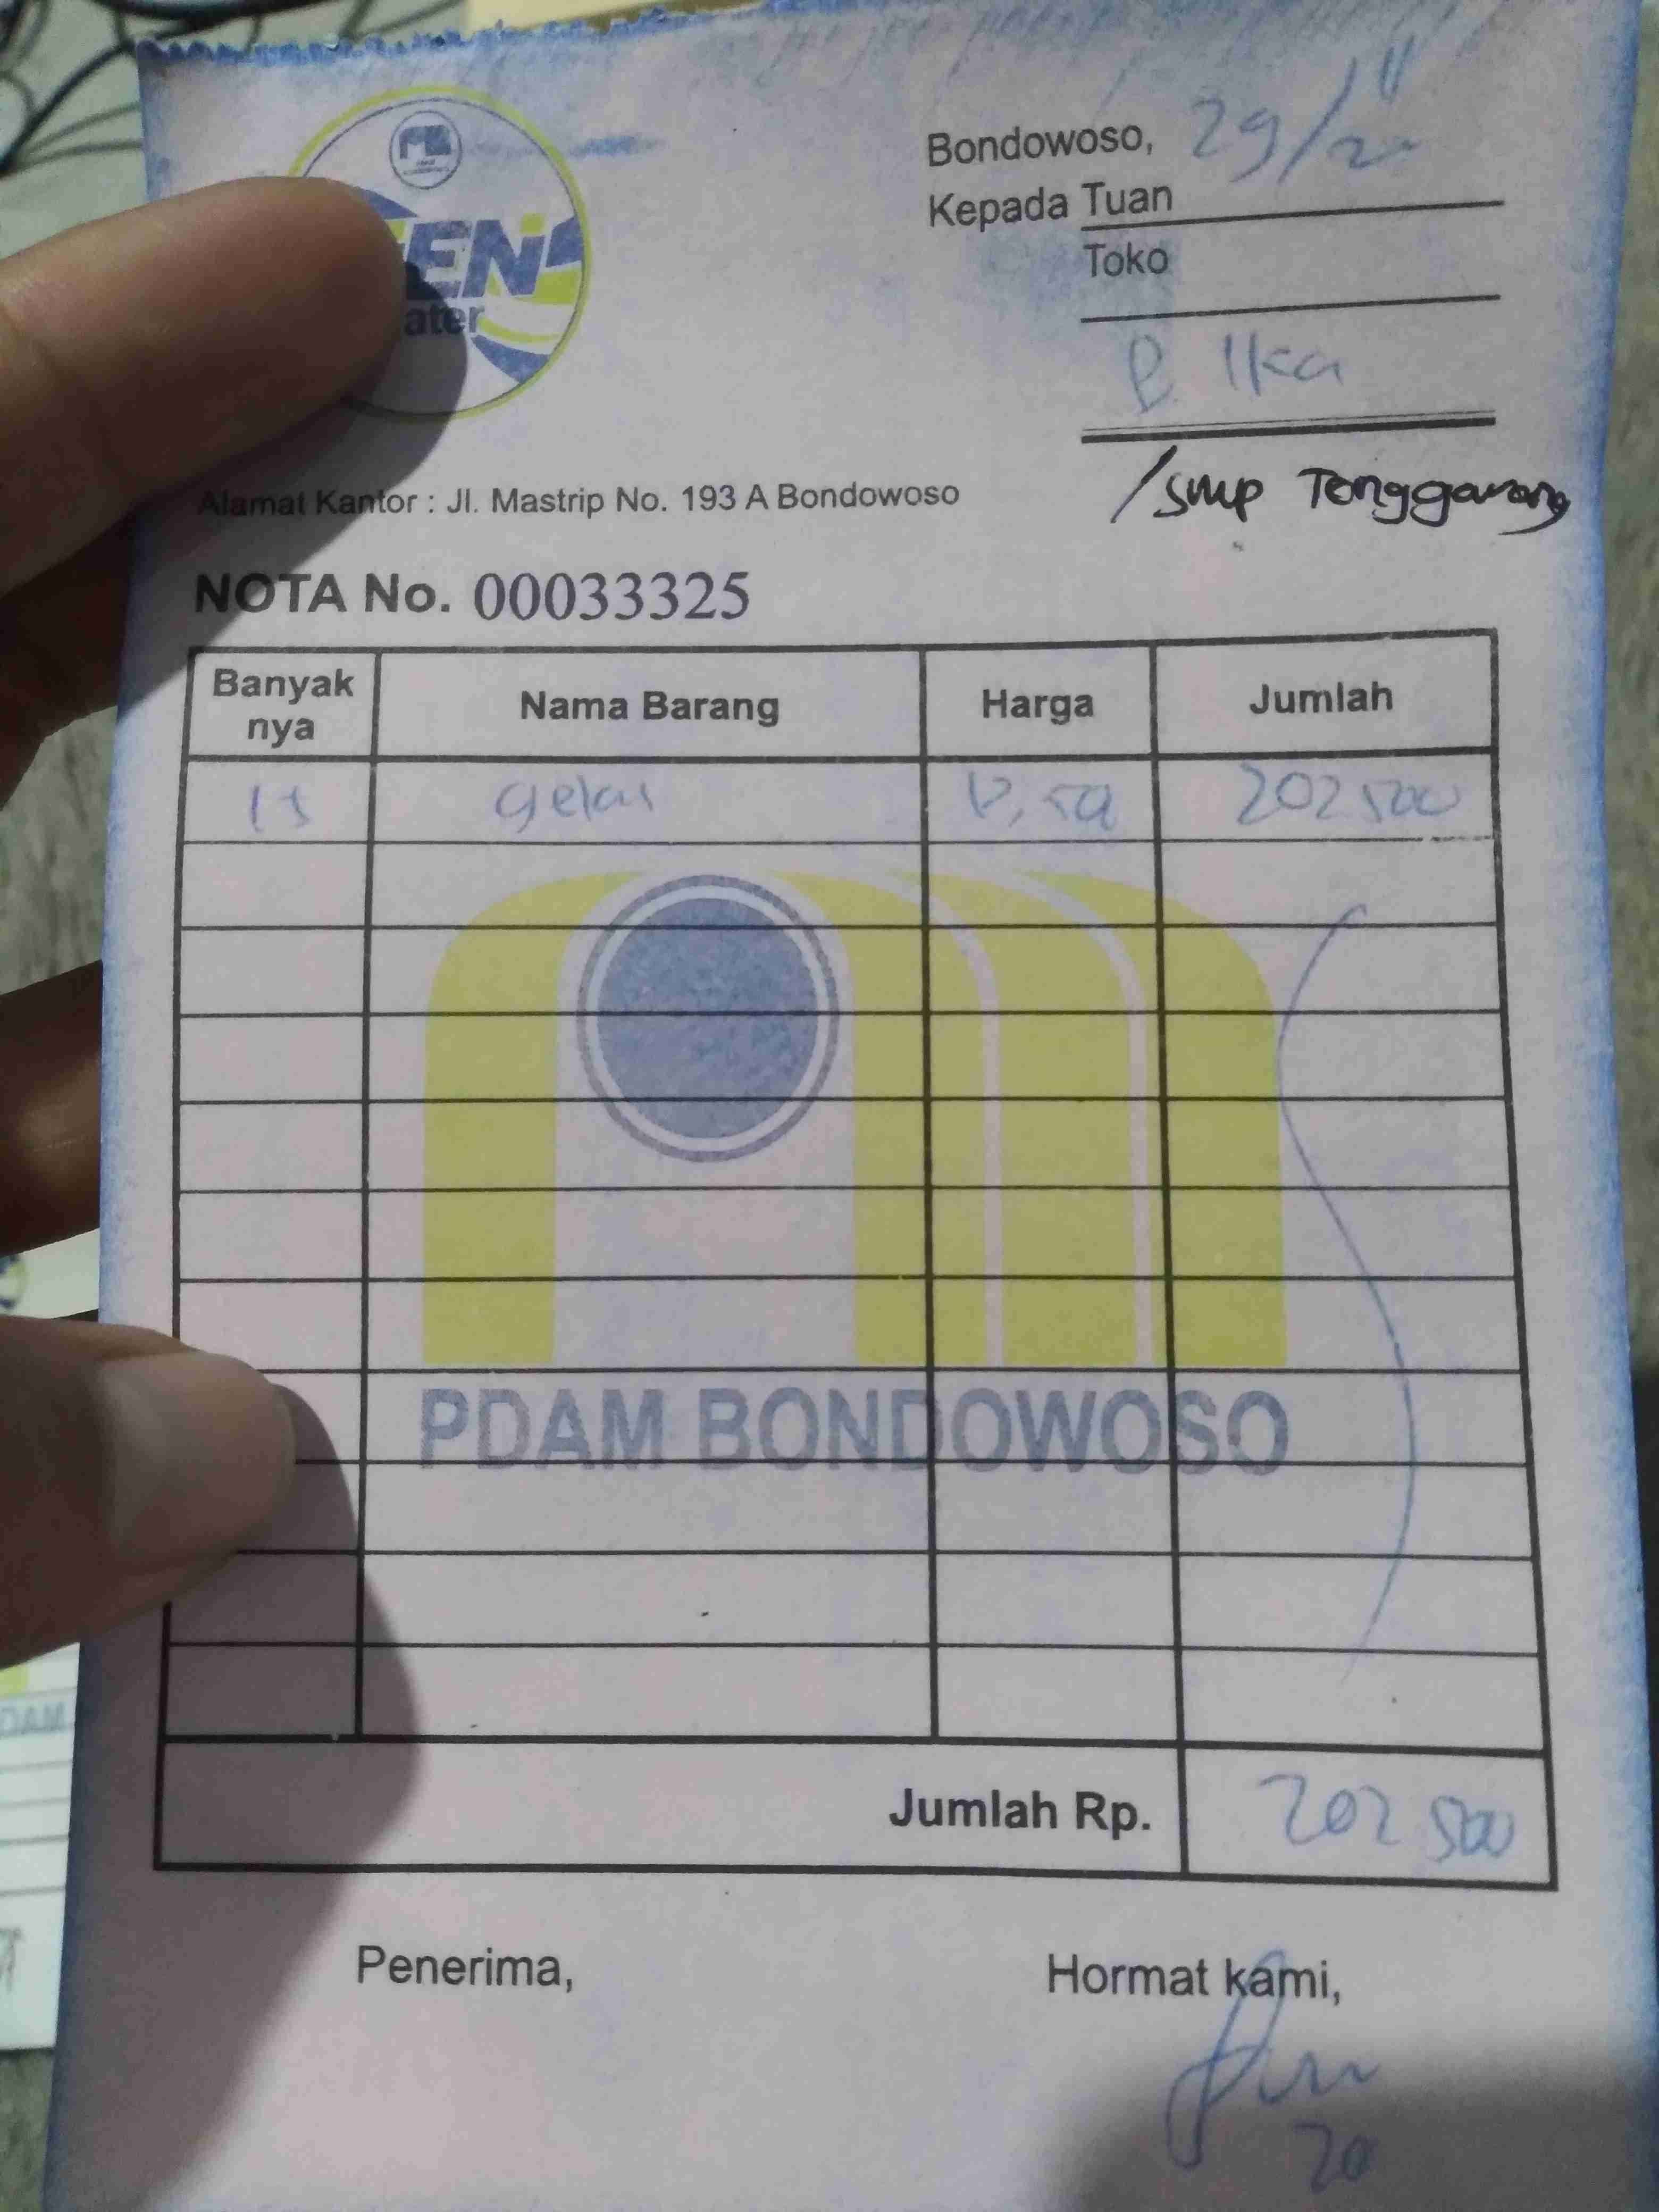 EN
ater
Bondowoso, 29/
Kepada Tuan
Toko
B. Ika
/smp Tenggarang
Alamat Kantor : Jl. Mastrip No. 193 A Bondowoso
NOTA No. 00033325
Banyak nya Nama Barang Harga Jumlah
15 gelas 202 500
PDAM BONDOWOSO
Jumlah Rp. 202 500
Penerima, Hormat kami,
DAM